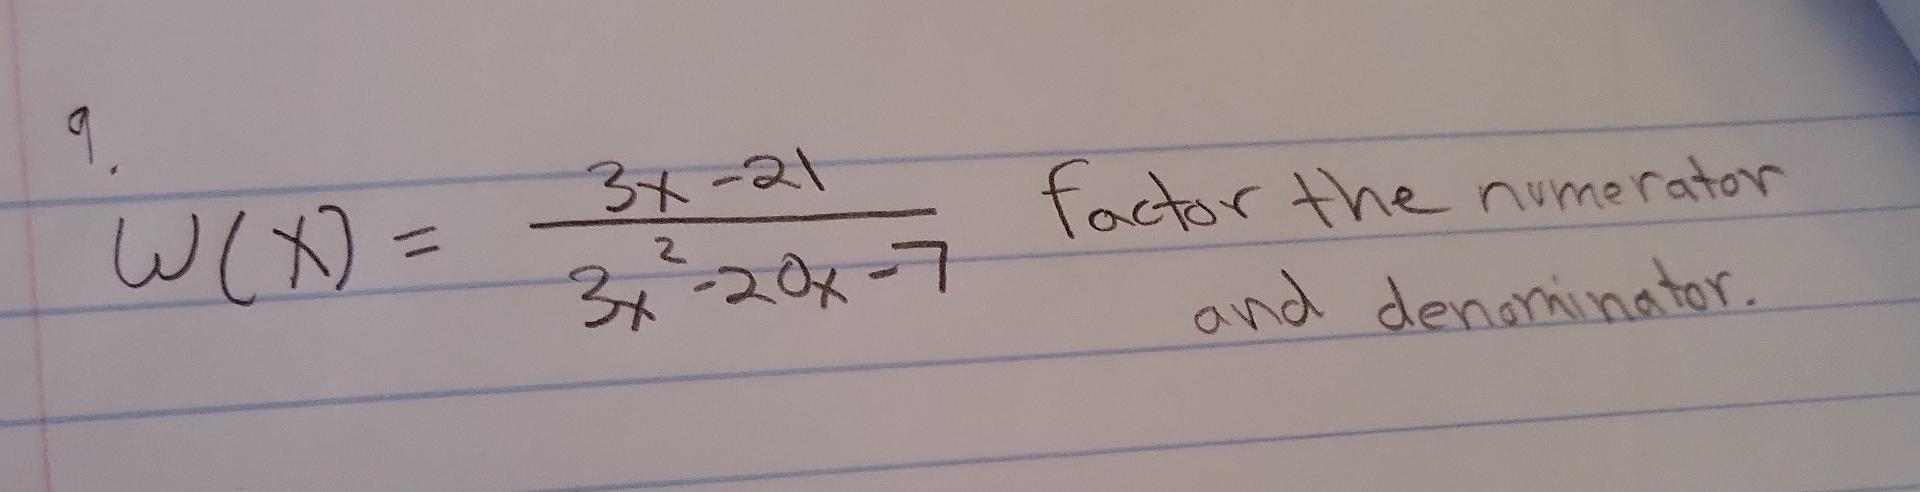 9.
W(x) = (3x - 21)/(3x² - 20x - 7) factor the numerator
and denominator.